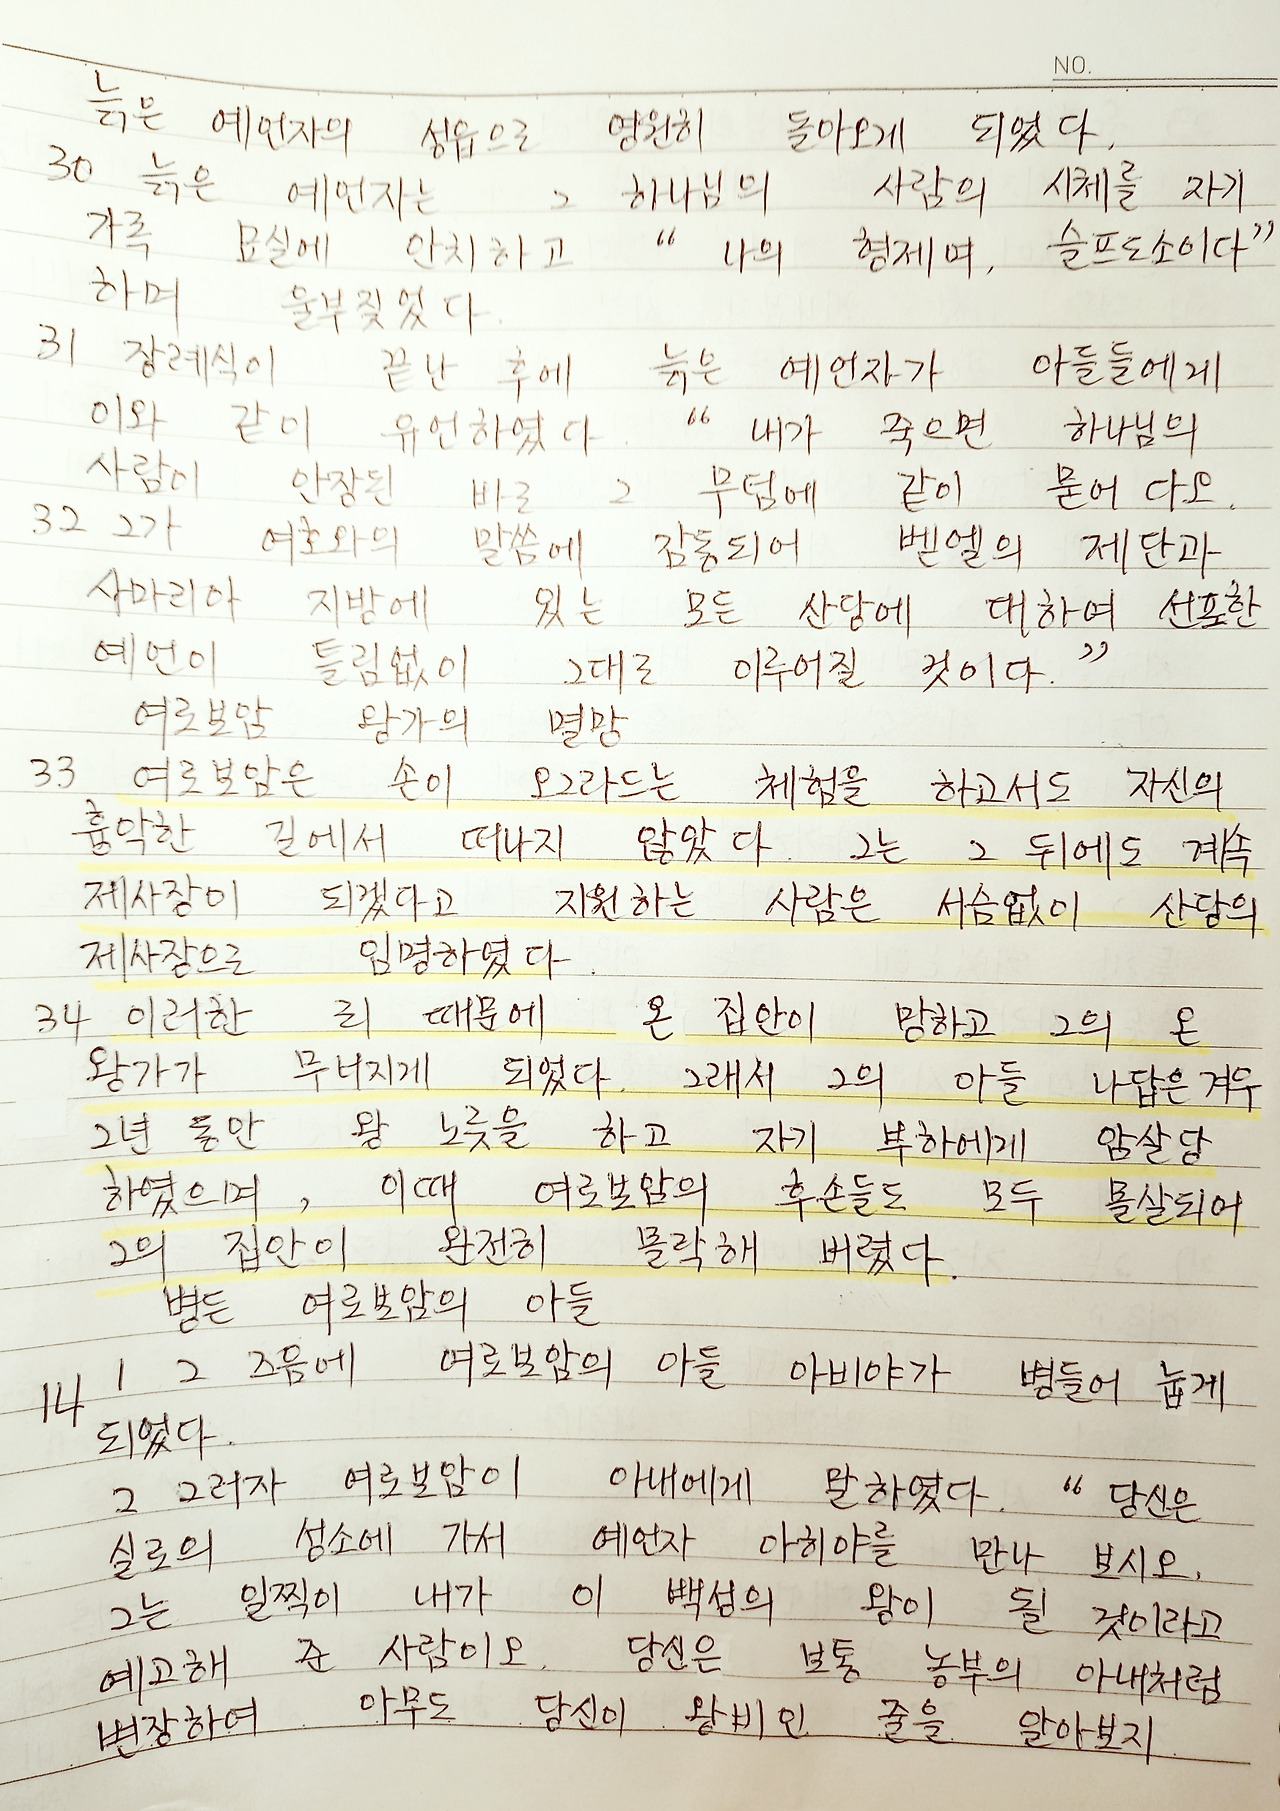 NO.
늙은 예언자의 성읍으로 영원히 돌아오게 되었다.
30 늙은 예언자는 그 하나님의 사람의 시체를 자기
가족 묘실에 안치하고 “나의 형제며, 슬프도소이다”
하며 울부짖었다.
31 장례식이 끝난 후에 늙은 예언자가 아들들에게
이와 같이 유언하였다. “내가 죽으면 하나님의
사람이 안장된 바로 그 무덤에 같이 묻어 다오.
32 그가 여호와의 말씀에 감동되어 벧엘의 제단과
사마리아 지방에 있는 모든 산당에 대하여 선포한
예언이 틀림없이 그대로 이루어질 것이다.”
여로보암 왕가의 멸망
33 여로보암은 손이 오그라드는 체험을 하고서도 자신의
흉악한 길에서 떠나지 않았다. 그는 그 뒤에도 계속
제사장이 되겠다고 지원하는 사람은 서슴없이 산당의
제사장으로 임명하였다.
34 이러한 죄 때문에 온 집안이 망하고 그의 온
왕가가 무너지게 되었다. 그래서 그의 아들 나답은 겨우
2년 동안 왕 노릇을 하고 자기 부하에게 암살당
하였으며, 이때 여로보암의 후손들도 모두 몰살되어
그의 집안이 완전히 몰락해 버렸다.
병든 여로보암의 아들
14 1 그 즈음에 여로보암의 아들 아비야가 병들어 눕게
되었다.
2 그러자 여로보암이 아내에게 말하였다. “당신은
실로의 성소에 가서 예언자 아히야를 만나 보시오.
그는 일찍이 내가 이 백성의 왕이 될 것이라고
예고해 준 사람이오. 당신은 보통 농부의 아내처럼
변장하여 아무도 당신이 왕비인 줄을 알아보지